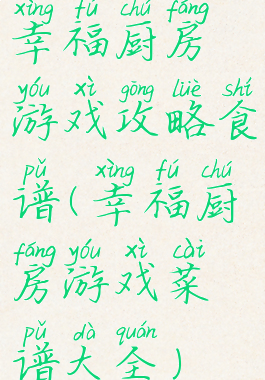 xìng fú chú fáng
幸福厨房
yóu xì gōng lüè shí
游戏攻略食
pǔ xìng fú chú
谱(幸福厨
fáng yóu xì cài
房游戏菜
pǔ dà quán
谱大全)